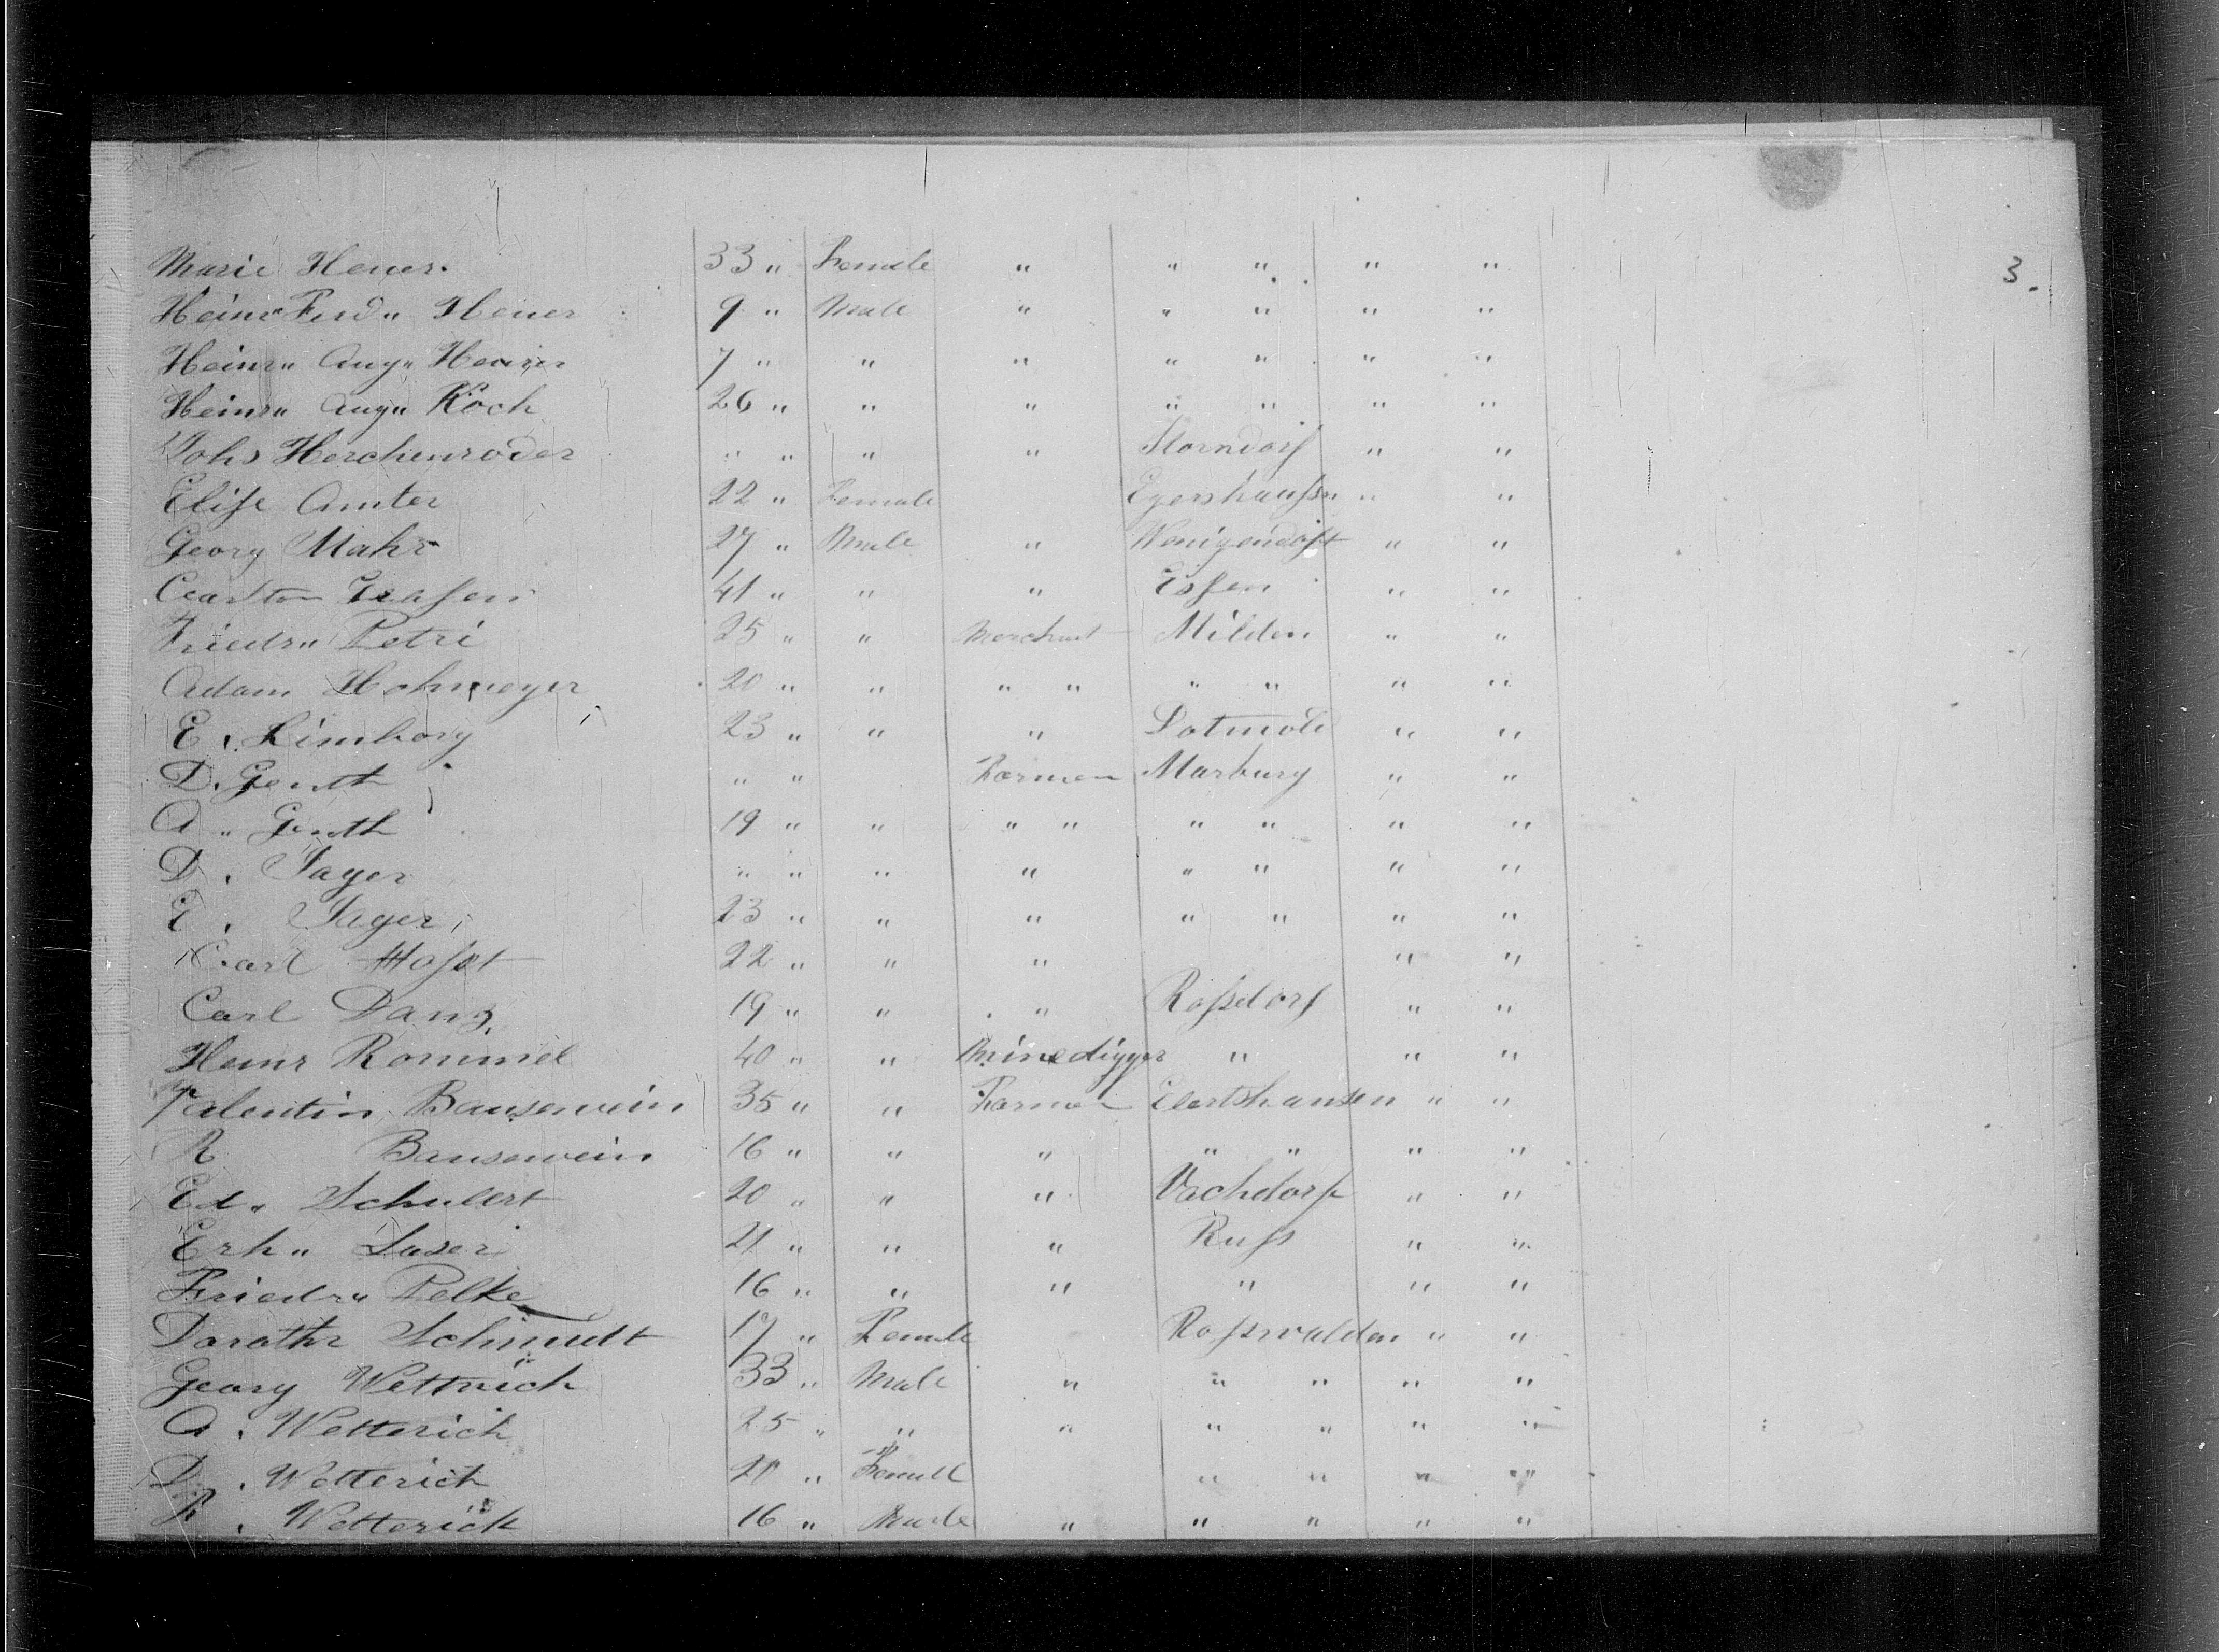 3.
Marie Heuer. 33 " Female " " " " "
Heinr Ferd" Heuer 9 " Male " " " " "
Heinr" Aug" Heuer 7 " " " " " " "
Heinr" Aug" Koch 26 " " " " " " "
Johs Herchenroder " " " " Storndorf " "
Elise Amter 22 " Female Egershausen " "
Georg Mahr 27 " Male " Wenigendoft " "
41 " " " Essen " "
Friedr" Petri 25 " " Merchant Milden " "
Adam Hohmeyer 20 " " " " " " " "
E. Limborg 23 " " " Dotmold " "
D. Genth " " Farmer Marburg " "
A " Genth 19 " " " " " " " "
D. Jager " " " " " " " "
E. Jager 23 " " " " " " "
Carl 22 " " " " "
Carl Danz 19 " " " Rossdorf " "
Heinr Rommel 40 " " Minedigger " " "
Valentin Bausewein 35 " " Farmer Ebertshausen " "
R Bausewein 16 " " " " " " "
Ed. Schubert 20 " " " Vachdorf " "
Erh" Laser 21 " " " Russ " "
Friedr" Pelke 16 " " " " " "
Dorathr Schmidt 17 " Female Rosswalden " "
Georg Wetterich 33 " Male " " " " "
A. Wetterich 25 " " " " " " "
D. Wetterich 20 " Female " " " "
R. Wetterich 16 " Male " " " " "